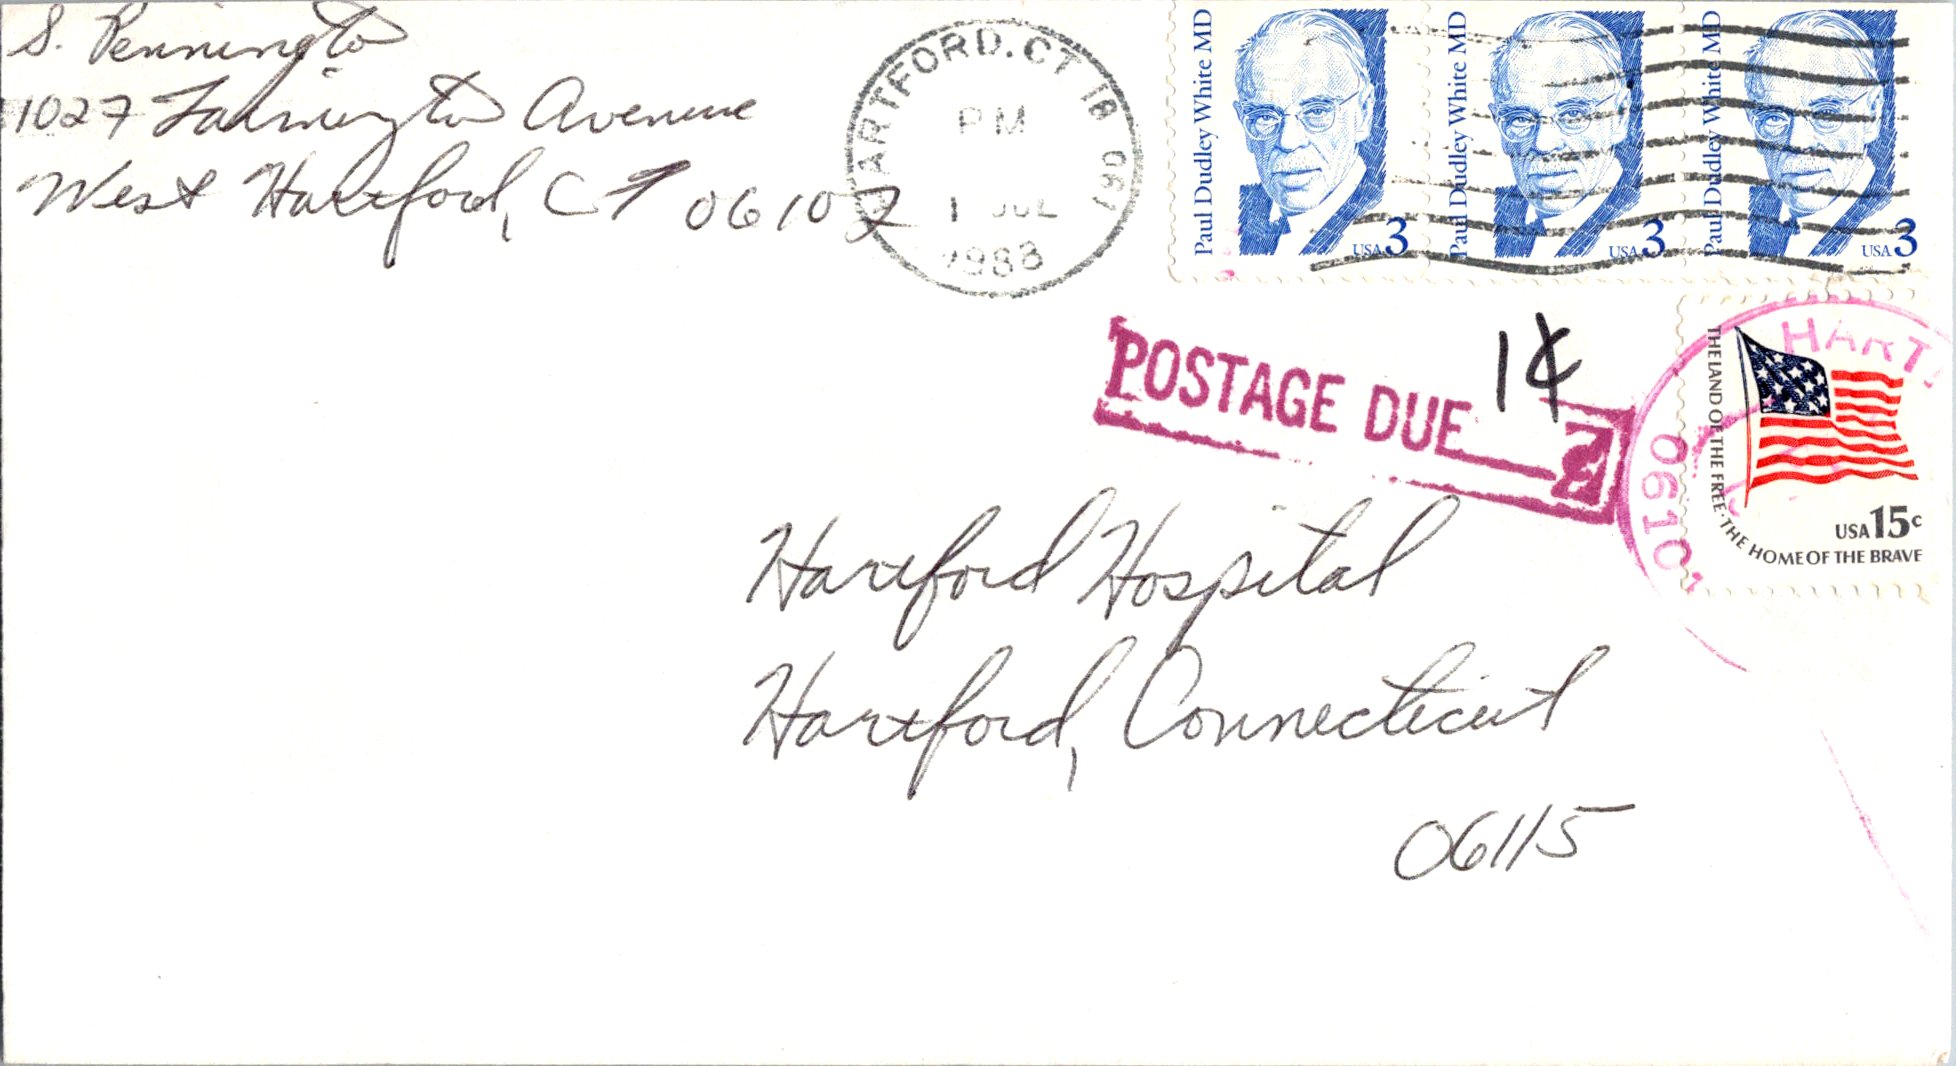 S. Pennington
1027 Farmington Avenue
West Hartford, CT 06107
HARTFORD, CT 18 061
PM
1 JUL
1988
Paul Dudley White MD
USA 3
Paul Dudley White MD
USA 3
Paul Dudley White MD
USA 3
POSTAGE DUE 1¢
HART
06101
THE LAND OF THE FREE · THE HOME OF THE BRAVE
USA 15c
Hartford Hospital
Hartford, Connecticut
06115